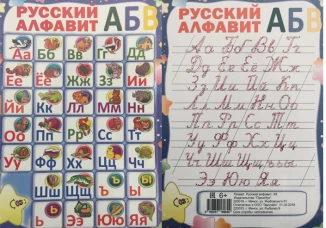 РУССКИЙ
АЛФАВИТ АБВ
Аа Бб Вв Гг Дд
Ее Ёё Жж Зз Ии
Йй Кк Лл Мм Нн
Оо Пп Рр Сс Тт
Уу Фф Хх Цц Чч
Шш Щщ Ъ Ы Ь
Ээ Юю Яя
РУССКИЙ
АЛФАВИТ АБВ
Аа Бб Вв Гг
Дд Ее Ёё Жж
Зз Ии Йй Кк
Лл Мм Нн Оо
Пп Рр Сс Тт
Уу Фф Хх Цц
Чч Шш Щщ ъ ы ь
Ээ Юю Яя
6+